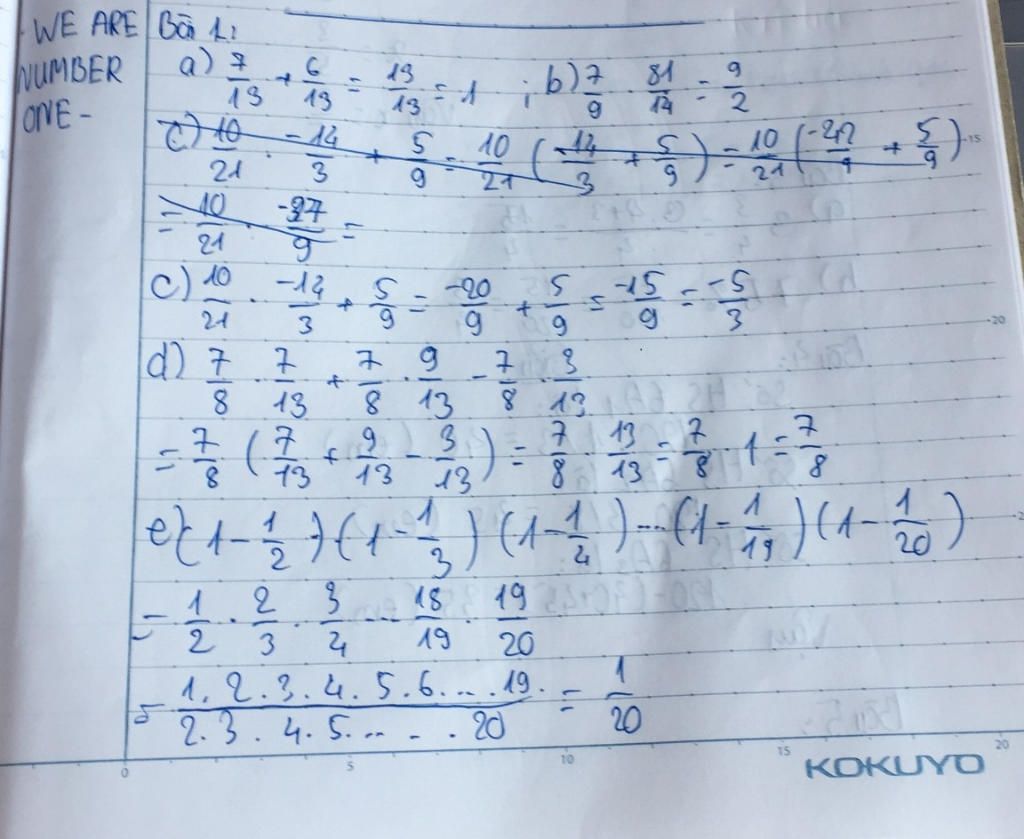 - WE ARE
NUMBER
ONE -
Bài 1:
a) 7/13 + 6/13 = 13/13 = 1 ; b) 7/9 . 81/14 = 9/2
c) 10/21 . -14/3 + 5/9 = 10/21 ( -14/3 + 5/9 ) = 10/21 ( -42/9 + 5/9 )
= 10/21 . -37/9 =
c) 10/21 . -14/3 + 5/9 = -20/9 + 5/9 = -15/9 = -5/3
d) 7/8 . 7/13 + 7/8 . 9/13 - 7/8 . 3/13
= 7/8 ( 7/13 + 9/13 - 3/13 ) = 7/8 . 13/13 = 7/8 . 1 = 7/8
e) (1 - 1/2) (1 - 1/3) (1 - 1/4) ... (1 - 1/19) (1 - 1/20)
= 1/2 . 2/3 . 3/4 ... 18/19 . 19/20
= 1.2.3.4.5.6....19. / 2.3.4.5......20 = 1/20
0 5 10 15 20
KOKUYO